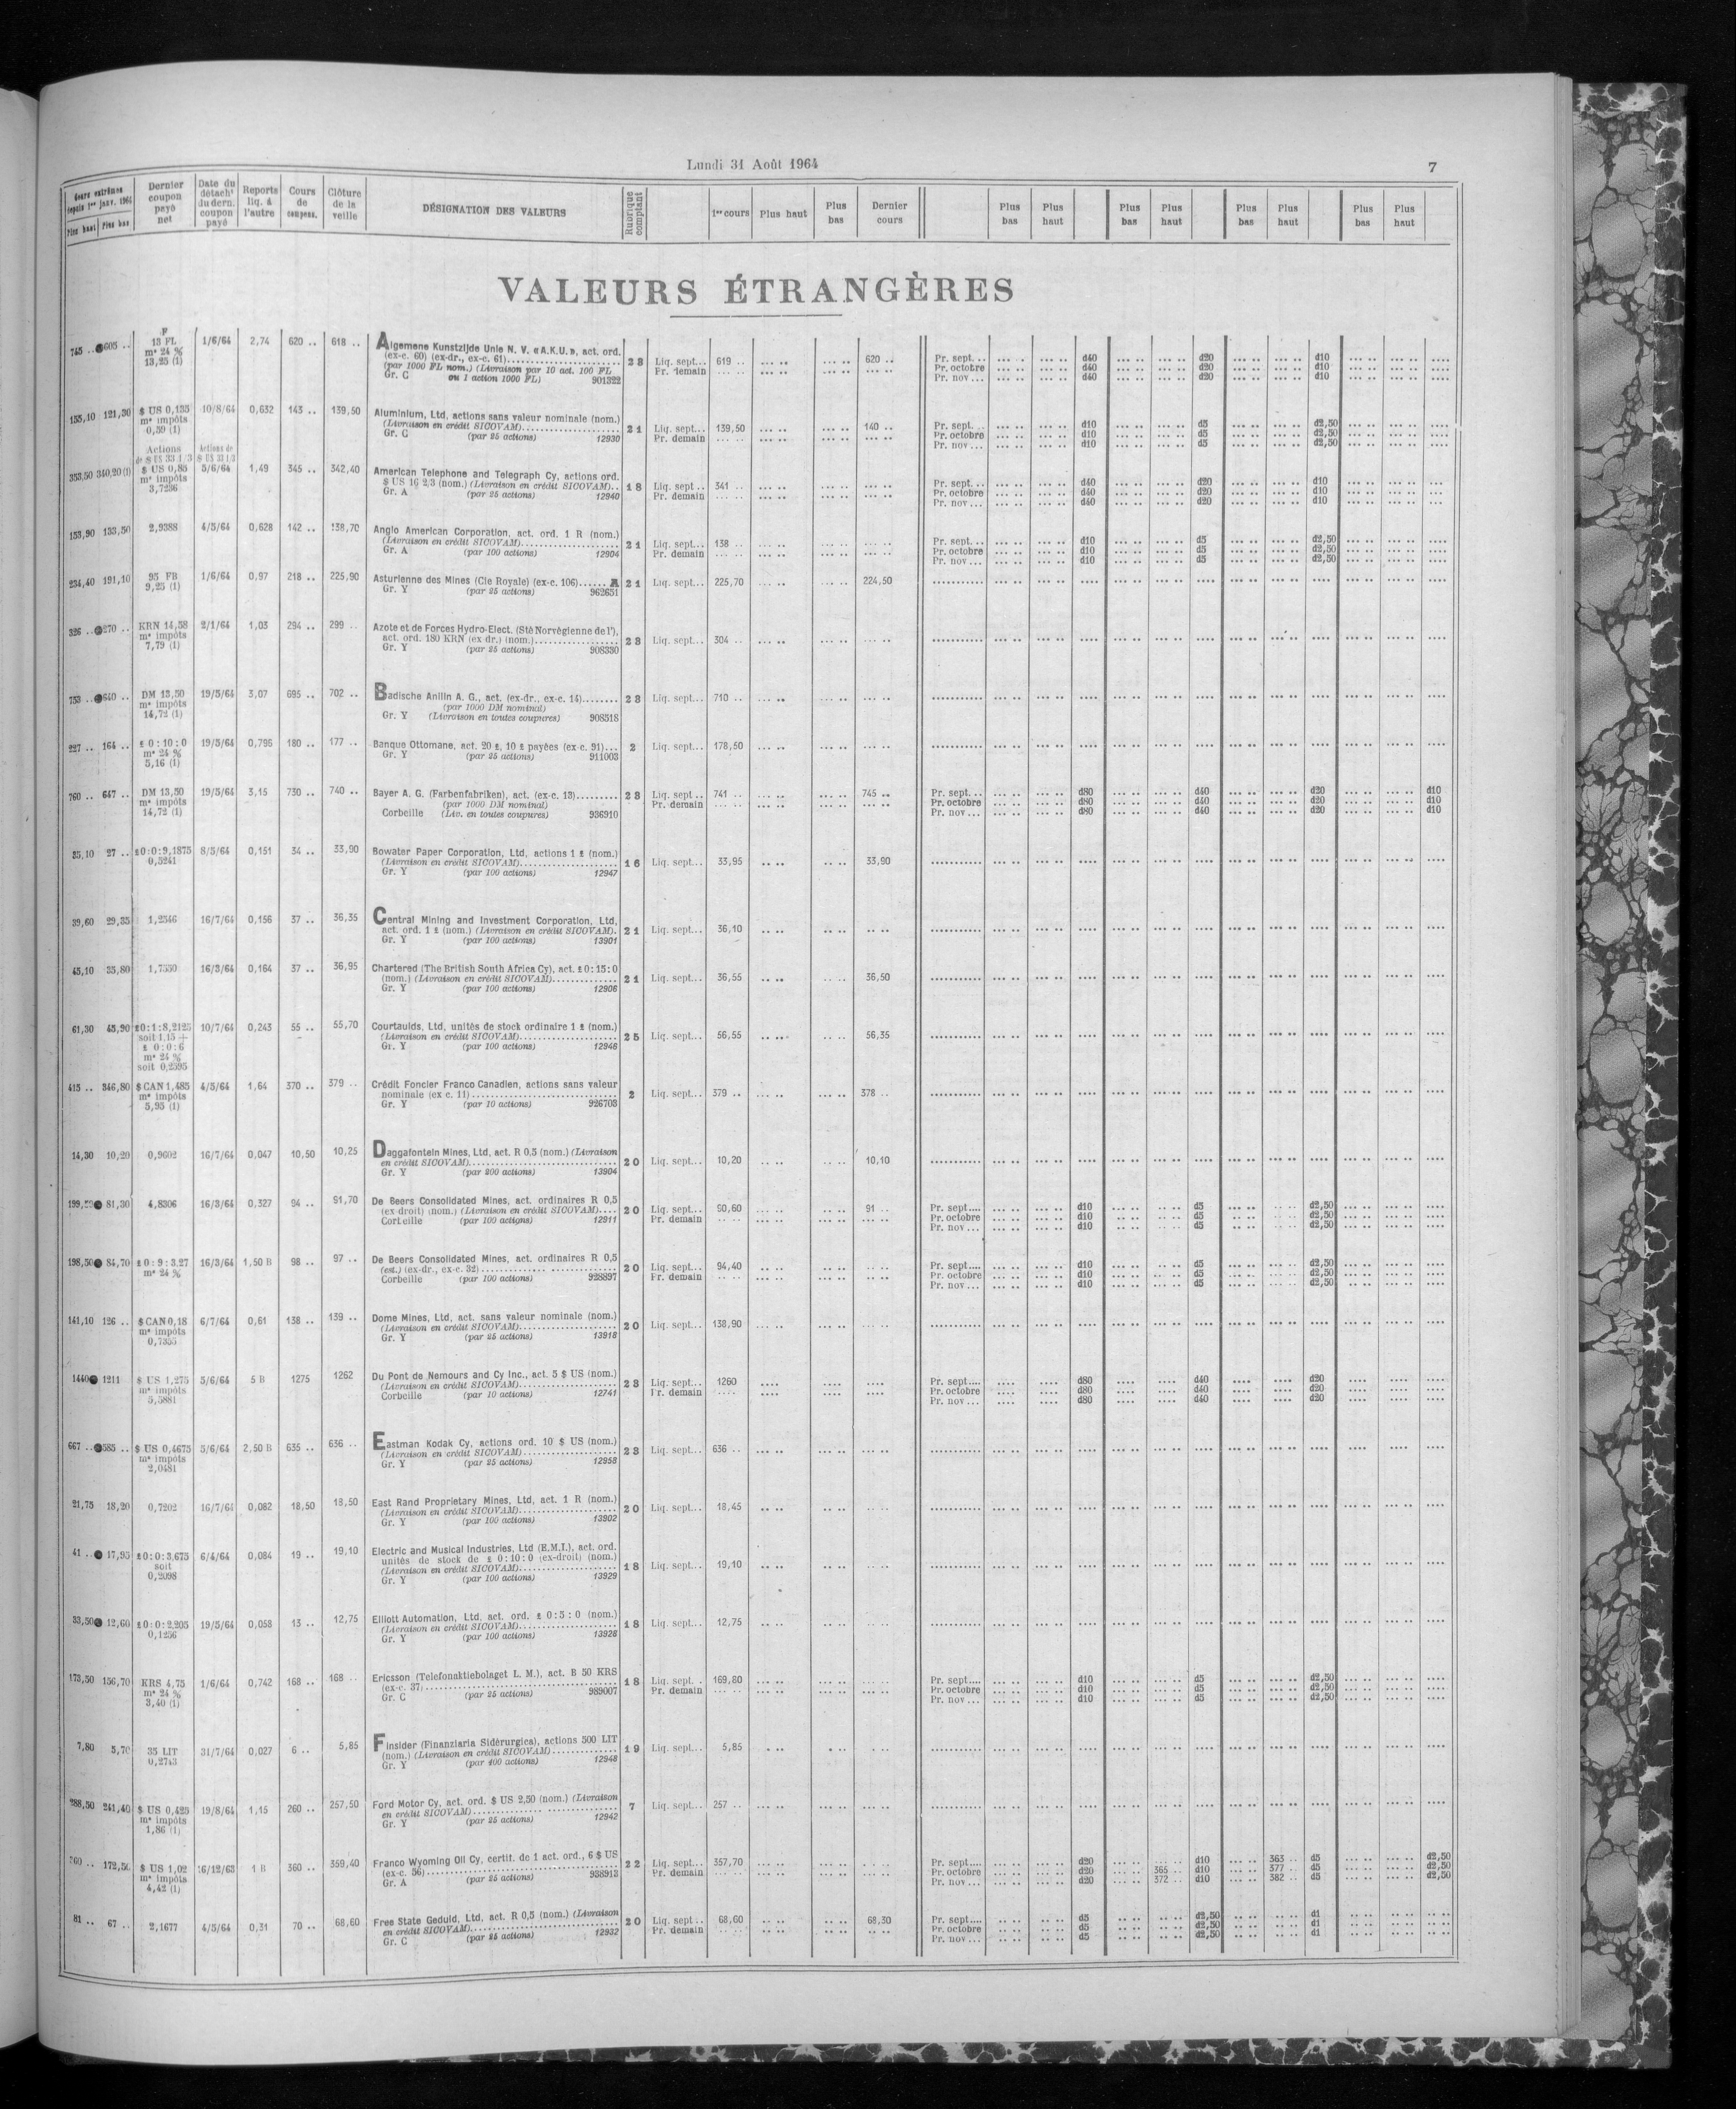 Lundi 31 Août 1964
7
Cours extrêmes depuis 1er janv. 1964
Plus haut Plus bas
Dernier coupon payé net
Date du détacht du dern. coupon payé
Reports liq. à l'autre
Cours de compens.
Clôture de la veille
DÉSIGNATION DES VALEURS
Rubrique comptant
1er cours Plus haut Plus bas Dernier cours
Plus bas Plus haut Plus bas Plus haut Plus bas Plus haut Plus bas Plus haut
VALEURS ÉTRANGÈRES
745 .. 605 .. F 13 FL 1/6/64 2,74 620 .. 618 .. Algemene Kunstzijde Unie N. V. «A.K.U.», act. ord.
me 24 % (ex-c. 60) (ex-dr., ex-c. 61) 28 Liq. sept... 619 .. 620 .. Pr. sept. .. d40 d20 d10
13,25 (1) (par 1000 FL nom.) (Livraison par 10 act. 100 FL Pr. demain Pr. octobre d40 d20 d10
Gr. C ou 1 action 1000 FL) 901322 Pr. nov ... d40 d20 d10
155,10 121,30 $ US 0,135 10/8/64 0,632 143 .. 139,50 Aluminium, Ltd, actions sans valeur nominale (nom.)
me impôts (Livraison en crédit SICOVAM) 21 Liq. sept... 139,50 140 .. Pr. sept. .. d10 d5 d2,50
0,59 (1) Gr. C (par 25 actions) 12930 Pr. demain Pr. octobre d10 d5 d2,50
Pr. nov ... d10 d5 d2,50
Actions de $ US 33 1/3 Actions de $ US 33 1/3
353,50 340,20 (1) $ US 0,85 5/6/64 1,49 345 .. 342,40 American Telephone and Telegraph Cy, actions ord.
me impôts $ US 16 2/3 (nom.) (Livraison en crédit SICOVAM).. 18 Liq. sept .. 341 .. Pr. sept. .. d40 d20 d10
3,7236 Gr. A (par 25 actions) 12940 Pr. demain Pr. octobre d40 d20 d10
Pr. nov ... d40 d20 d10
153,90 133,50 2,9388 4/5/64 0,628 142 .. 138,70 Anglo American Corporation, act. ord. 1 R (nom.)
(Livraison en crédit SICOVAM) 21 Liq. sept... 138 .. Pr. sept. .. d10 d5 d2,50
Gr. A (par 100 actions) 12904 Pr. demain Pr. octobre d10 d5 d2,50
Pr. nov ... d10 d5 d2,50
234,40 191,10 95 FB 1/6/64 0,97 218 .. 225,90 Asturienne des Mines (Cie Royale) (ex-c. 106)...... A 21 Liq. sept... 225,70 224,50
9,25 (1) Gr. Y (par 25 actions) 962651
326 .. 270 .. KRN 14,58 2/1/64 1,03 294 .. 299 .. Azote et de Forces Hydro-Elect. (Sté Norvégienne de l'),
me impôts act. ord. 180 KRN (ex dr.) (nom.) 28 Liq. sept... 304 ..
7,79 (1) Gr. Y (par 25 actions) 908330
753 .. 640 .. DM 13,50 19/5/64 3,07 695 .. 702 .. Badische Anilin A. G., act. (ex-dr., ex-c. 14) 28 Liq. sept... 710 ..
me impôts (par 1000 DM nominal)
14,72 (1) Gr. Y (Livraison en toutes coupures) 908518
227 .. 164 .. £ 0 : 10 : 0 19/5/64 0,795 180 .. 177 .. Banque Ottomane, act. 20 £, 10 £ payées (ex-c. 91)... 2 Liq. sept... 178,50
me 24 % Gr. Y (par 25 actions) 911003
5,16 (1)
760 .. 647 .. DM 13,50 19/5/64 3,15 730 .. 740 .. Bayer A. G. (Farbenfabriken), act. (ex-c. 13) 28 Liq. sept .. 741 .. 745 .. Pr. sept. .. d80 d40 d20 d10
me impôts (par 1000 DM nominal) Pr. demain Pr. octobre d80 d40 d20 d10
14,72 (1) Corbeille (Liv. en toutes coupures) 936910 Pr. nov ... d80 d40 d20 d10
35,10 27 .. £0:0:9,1875 8/5/64 0,151 34 .. 33,90 Bowater Paper Corporation, Ltd, actions 1 £ (nom.)
0,5241 (Livraison en crédit SICOVAM) 16 Liq. sept... 33,95 33,90
Gr. Y (par 100 actions) 12947
39,60 29,35 1,2546 16/7/64 0,156 37 .. 36,35 Central Mining and Investment Corporation, Ltd,
act. ord. 1 £ (nom.) (Livraison en crédit SICOVAM). 21 Liq. sept... 36,10
Gr. Y (par 100 actions) 13901
45,10 35,80 1,7550 16/3/64 0,164 37 .. 36,95 Chartered (The British South Africa Cy), act. £ 0:15:0
(nom.) (Livraison en crédit SICOVAM) 21 Liq. sept... 36,55 36,50
Gr. Y (par 100 actions) 12906
61,30 45,90 £0:1:8,2125 10/7/64 0,243 55 .. 55,70 Courtaulds, Ltd, unités de stock ordinaire 1 £ (nom.)
soit 1,15 + (Livraison en crédit SICOVAM) 25 Liq. sept... 56,55 56,35
£ 0:0:6 Gr. Y (par 100 actions) 12946
me 24 %
soit 0,2595
415 .. 346,80 $ CAN 1,485 4/5/64 1,64 370 .. 379 .. Crédit Foncier Franco Canadien, actions sans valeur
me impôts nominale (ex c. 11) 2 Liq. sept... 379 .. 378 ..
5,95 (1) Gr. Y (par 10 actions) 926703
14,30 10,20 0,9602 16/7/64 0,047 10,50 10,25 Daggafontein Mines, Ltd, act. R 0,5 (nom.) (Livraison
en crédit SICOVAM) 20 Liq. sept... 10,20 10,10
Gr. Y (par 200 actions) 13904
81,30 4,8306 16/3/64 0,327 94 .. 91,70 De Beers Consolidated Mines, act. ordinaires R 0,5
(ex-droit) (nom.) (Livraison en crédit SICOVAM).... 20 Liq. sept... 90,60 91 .. Pr. sept.... d10 d5 d2,50
Corbeille (par 100 actions) 12911 Pr. demain Pr. octobre d10 d5 d2,50
Pr. nov ... d10 d5 d2,50
198,50 84,70 £ 0 : 9 : 3,27 16/3/64 1,50 B 98 .. 97 .. De Beers Consolidated Mines, act. ordinaires R 0,5
me 24 % (est.) (ex-dr., ex-c. 32) 20 Liq. sept... 94,40 Pr. sept.... d10 d5 d2,50
Corbeille (par 100 actions) 928897 Pr. demain Pr. octobre d10 d5 d2,50
Pr. nov ... d10 d5 d2,50
141,10 126 .. $ CAN 0,18 6/7/64 0,61 138 .. 139 .. Dome Mines, Ltd, act. sans valeur nominale (nom.)
me impôts (Livraison en crédit SICOVAM) 20 Liq. sept... 138,90
0,7355 Gr. Y (par 25 actions) 13918
1440 1211 $ US 1,275 5/6/64 5 B 1275 1262 Du Pont de Nemours and Cy Inc., act. 5 $ US (nom.)
me impôts (Livraison en crédit SICOVAM) 28 Liq. sept... 1260 Pr. sept.... d80 d40 d20
5,5881 Corbeille (par 10 actions) 12741 Pr. demain Pr. octobre d80 d40 d20
Pr. nov ... d80 d40 d20
667 .. 585 .. $ US 0,4675 5/6/64 2,50 B 635 .. 636 .. Eastman Kodak Cy, actions ord. 10 $ US (nom.)
me impôts (Livraison en crédit SICOVAM) 28 Liq. sept... 636 ..
2,0481 Gr. Y (par 25 actions) 12958
21,75 18,20 0,7202 16/7/64 0,082 18,50 18,50 East Rand Proprietary Mines, Ltd, act. 1 R (nom.)
(Livraison en crédit SICOVAM) 20 Liq. sept... 18,45
Gr. Y (par 100 actions) 13902
41 .. 17,95 £0:0:3,675 6/4/64 0,084 19 .. 19,10 Electric and Musical Industries, Ltd (E.M.I.), act. ord.
soit unités de stock de £ 0:10:0 (ex-droit) (nom.)
0,2098 (Livraison en crédit SICOVAM) 18 Liq. sept... 19,10
Gr. Y (par 100 actions) 13929
33,50 12,60 £0:0:2,205 19/5/64 0,058 13 .. 12,75 Elliott Automation, Ltd, act. ord. £ 0:5:0 (nom.)
0,1256 (Livraison en crédit SICOVAM) 18 Liq. sept... 12,75
Gr. Y (par 100 actions) 13928
173,50 156,70 KRS 4,75 1/6/64 0,742 168 .. 168 .. Ericsson (Telefonaktiebolaget L. M.), act. B 50 KRS
me 24 % (ex-c. 37) 18 Liq. sept. . 169,80 Pr. sept.... d10 d5 d2,50
3,40 (1) Gr. C (par 25 actions) 989007 Pr. demain Pr. octobre d10 d5 d2,50
Pr. nov ... d10 d5 d2,50
7,80 5,70 35 LIT 31/7/64 0,027 6 .. 5,85 Finsider (Finanziaria Sidérurgica), actions 500 LIT
0,2743 (nom.) (Livraison en crédit SICOVAM) 19 Liq. sept... 5,85
Gr. Y (par 400 actions) 12948
288,50 241,40 $ US 0,425 19/8/64 1,15 260 .. 257,50 Ford Motor Cy, act. ord. $ US 2,50 (nom.) (Livraison
me impôts en crédit SICOVAM) 7 Liq. sept... 257 ..
1,86 (1) Gr. Y (par 25 actions) 12942
172,50 $ US 1,02 16/12/63 1 B 360 .. 359,40 Franco Wyoming Oil Cy, certif. de 1 act. ord., 6 $ US
me impôts (ex-c. 56) 22 Liq. sept... 357,70 Pr. sept.... d20 d10 363 .. d5 d2,50
4,42 (1) Gr. A (par 25 actions) 938913 Pr. demain Pr. octobre d20 365 .. d10 377 .. d5 d2,50
Pr. nov ... d20 372 .. d10 382 .. d5 d2,50
81 .. 67 .. 2,1677 4/5/64 0,31 70 .. 68,60 Free State Geduld, Ltd, act. R 0,5 (nom.) (Livraison
en crédit SICOVAM) 20 Liq. sept .. 68,60 68,30 Pr. sept.... d5 d2,50 d1
Gr. C (par 25 actions) 12932 Pr. demain Pr. octobre d5 d2,50 d1
Pr. nov ... d5 d2,50 d1